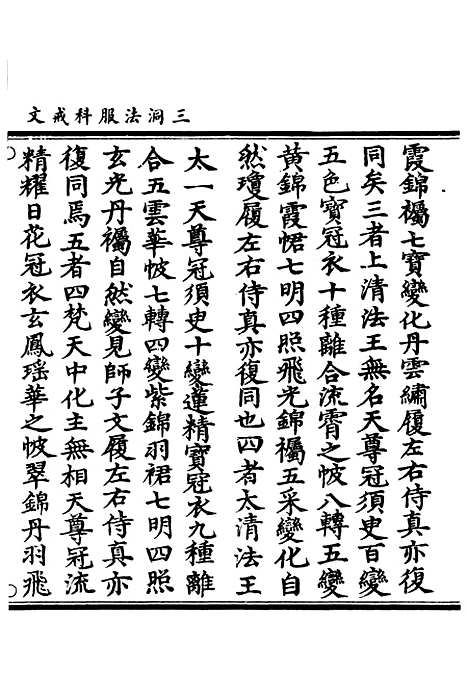 三洞法服科戒文
霞錦襡七寶變化丹雲繡履左右侍真亦復
同矣三者上清法王無名天尊冠須史百變
五色寶冠衣十種離合流霄之帔八轉五變
黃錦霞裙七明四照飛光錦襡五采變化自
然瓊履左右侍真亦復同也四者太清法王
太一天尊冠須史十變蓮精寶冠衣九種離
合五雲華帔七轉四變紫錦羽裙七明四照
玄光丹襡自然變見師子文履左右侍真亦
復同焉五者四梵天中化主無相天尊冠流
精耀日花冠衣玄鳳瑶華之帔翠錦丹羽飛